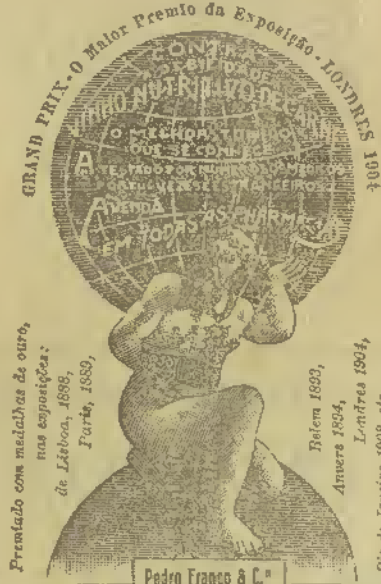 GRAND PRIX - O Maior Premio da Exposição - LONDRES 1904
CONTRA
A DEBILIDADE
VINHO NUTRITIVO DE CARNE
O MELHOR TONICO
QUE SE CONHECE
ATTESTADO POR MUITOS MEDICOS
PORTUGUEZES E ESTRANGEIROS
Á VENDA
EM TODAS AS PHARMACIAS
Premiado com medalhas de ouro,
nas exposições:
de Lisboa, 1888,
Paris, 1889,
Belem 1893,
Anvers 1894,
Londres 1904,
Pedro Franco & C.ª